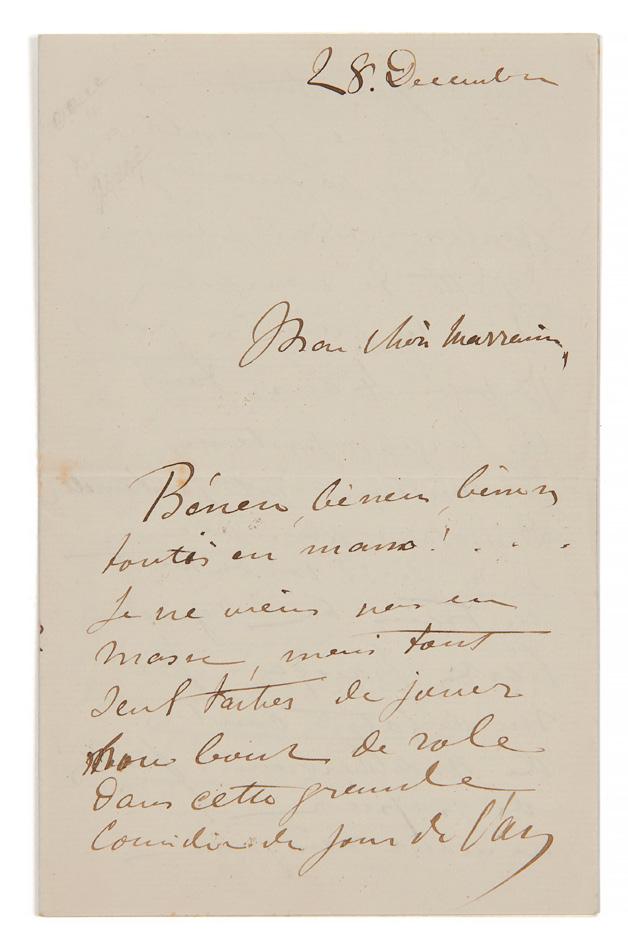 28. Decembre
Mon chère Marraine,
Bénem, bénem, bénem
toutes en masse! . . .
Je ne viens pas en
masse, mais tout
seul tacher de jouer
mon bout de role
dans cette grande
Comédie de jour de l'an,